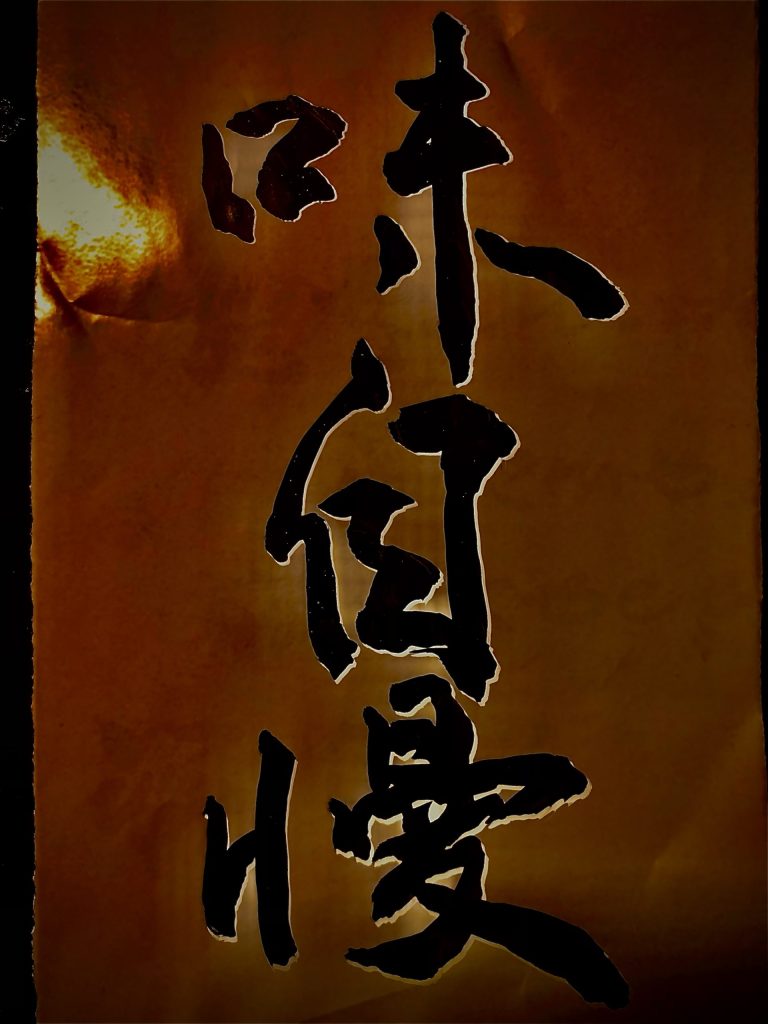 味自慢